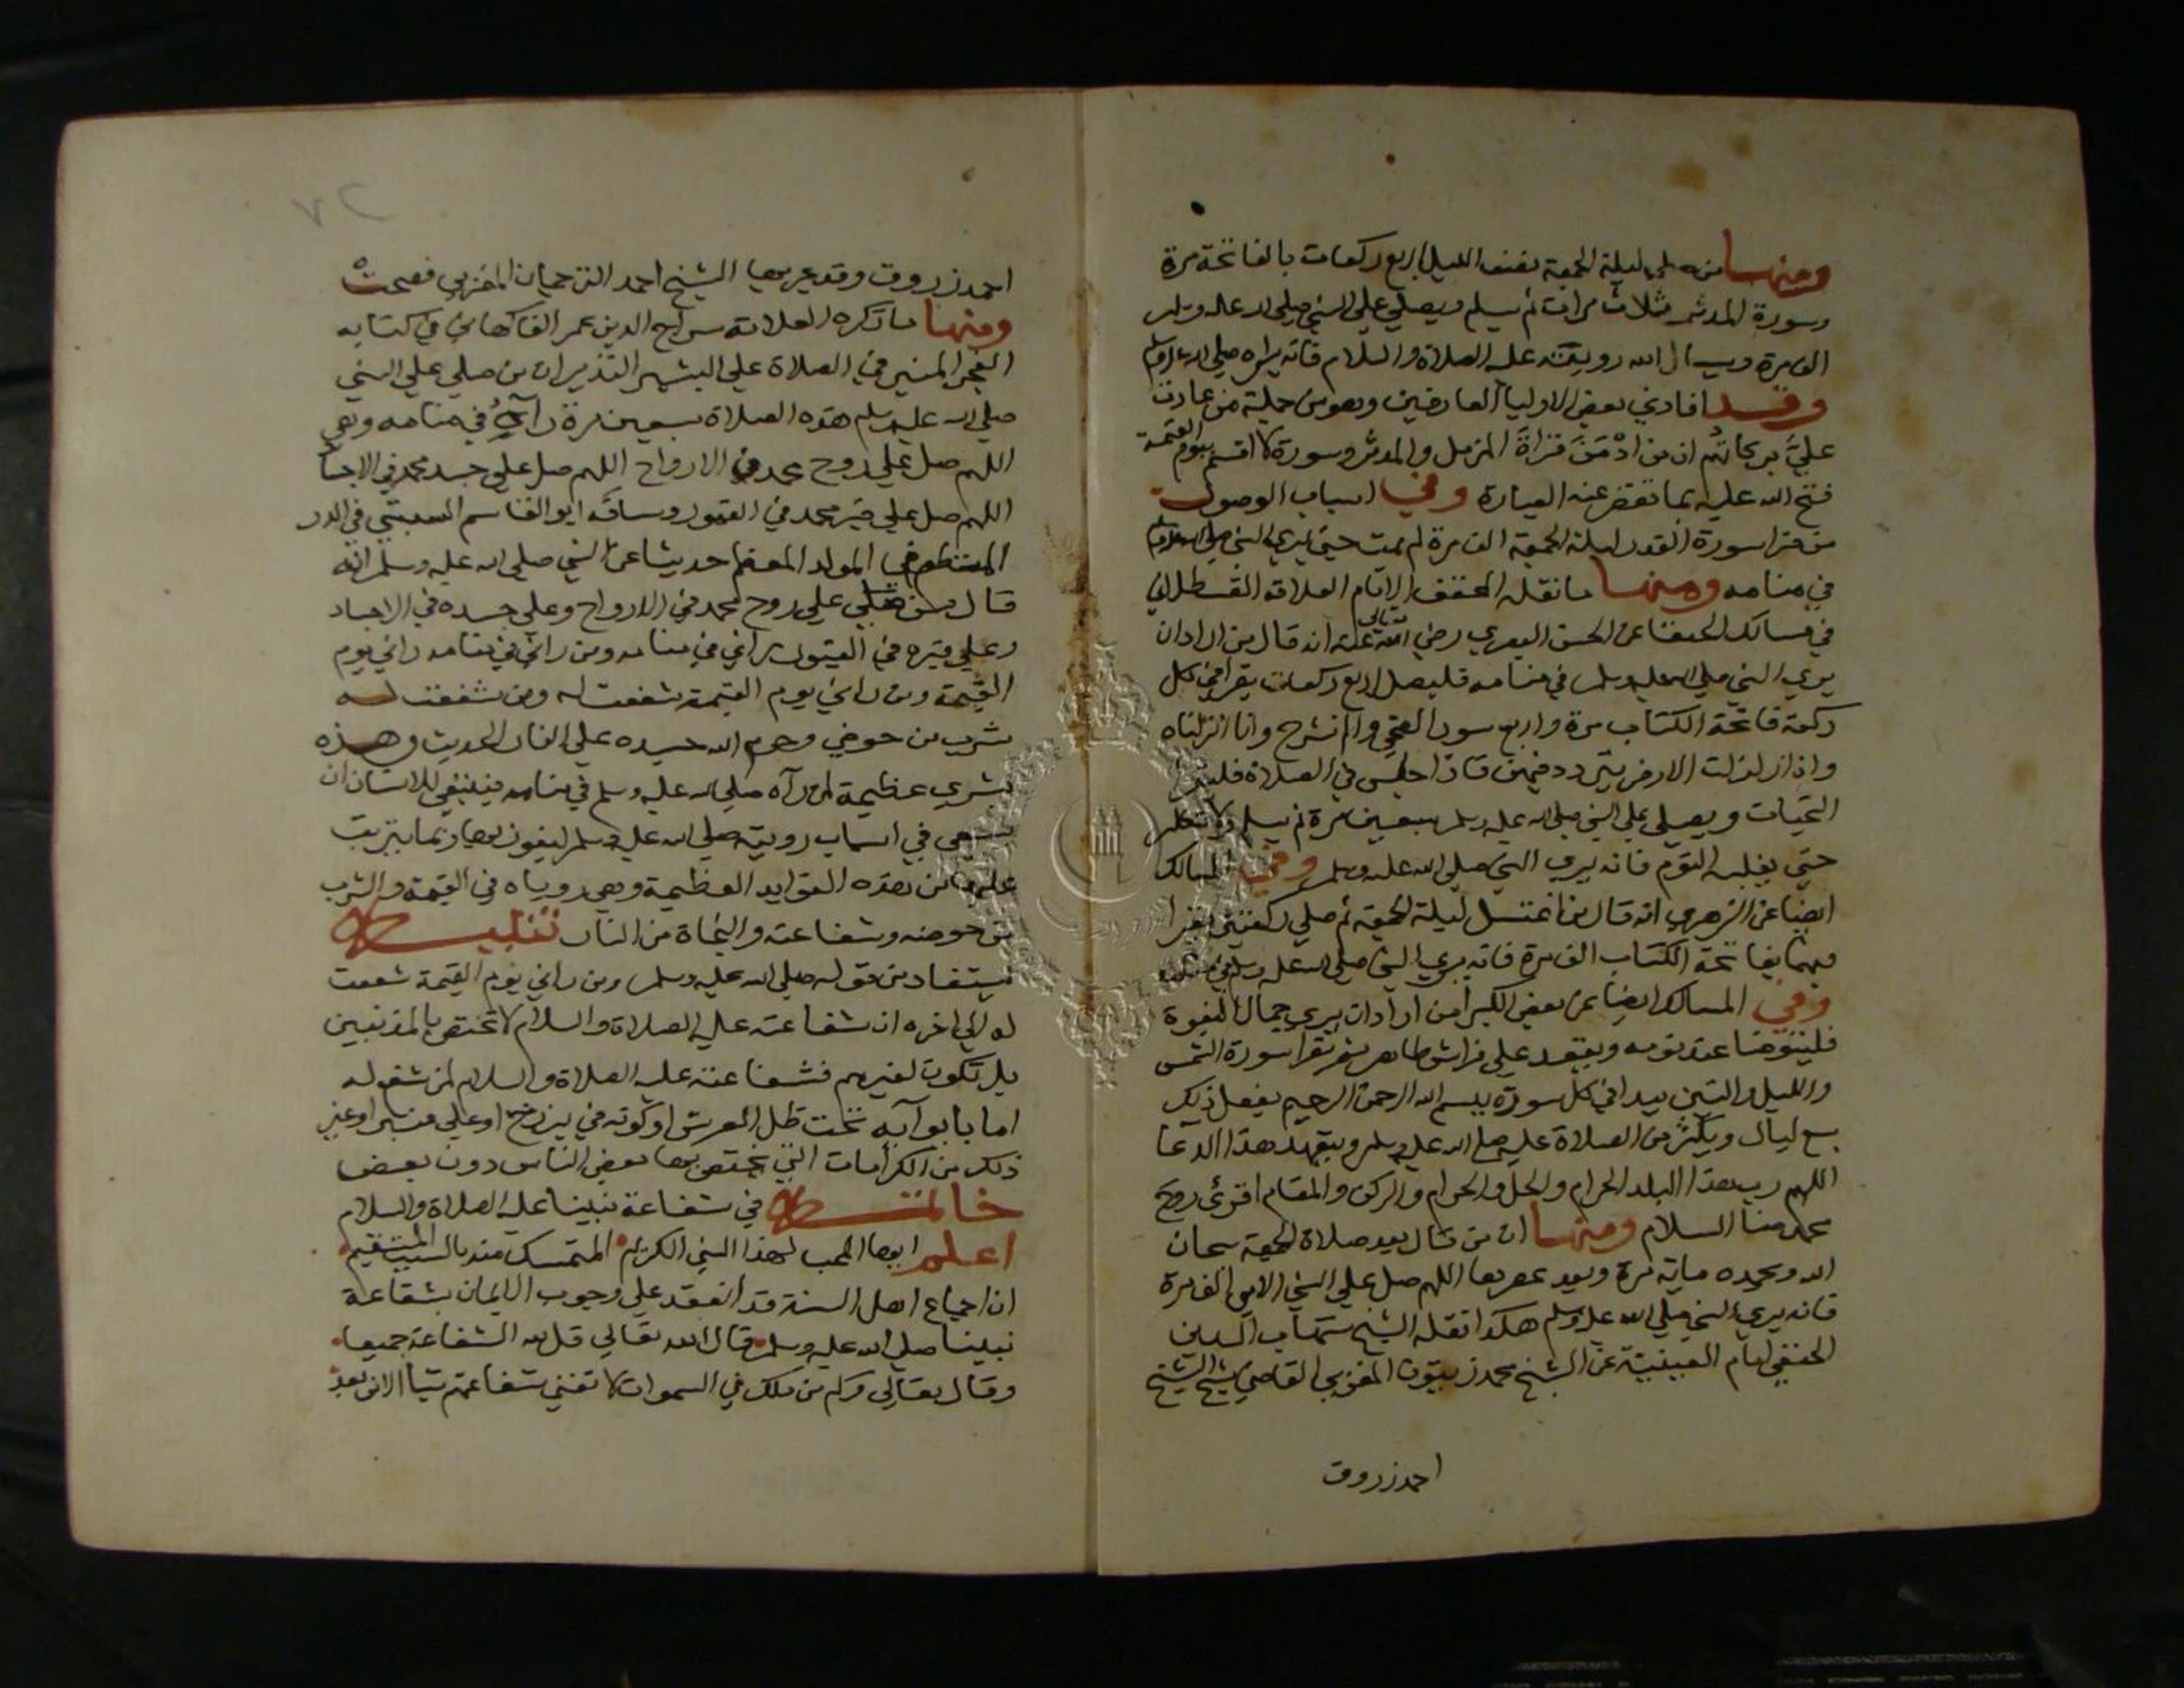 ومنها من صلى ليلة الجمعة نصف الليل اربع ركعات بالفاتحة مرة
وسورة المدثر ثلاث مرات ثم يسلم ويصلي على النبي صلى الله عليه وسلم
الف مرة ويسال الله رويته عليه الصلاة والسلام فانه يراه صلى الله عليه وسلم
وقد افادني بعض الاولياء العارفين وهو من جملة من عادت
علي بركاتهم ان من ادمن قراة المزمل والمدثر وسورة لا اقسم بيوم القيمة
فتح الله عليه بما تقصر عنه العبارة وفي اسباب الوصول
من قرا سورة القدر ليلة الجمعة الف مرة لم يمت حتى يري النبي صلى الله عليه وسلم
في منامه ومنها ما نقله المحقق الامام العلامة القسطلاني
في مسالك الحنفا عن الحسن البصري رضي الله تعالى عنه انه قال من اراد ان
يري النبي صلى الله عليه وسلم في منامه فليصل اربع ركعات يقرا في كل
ركعة فاتحة الكتاب مرة واربع سور الضحي والم نشرح وانا انزلناه
واذا زلزلت الارض يتردد فيهن فاذا جلس في الصلاة فليقرا
التحيات ويصلي على النبي صلى الله عليه وسلم سبعين مرة ثم يسلم ولا يتكلم
حتي يغلبه النوم فانه يري النبي صلى الله عليه وسلم وفي المسالك
ايضا عن الزهري انه قال من اغتسل ليلة الجمعة ثم صلي ركعتين يقرا
فيهما بفاتحة الكتاب الف مرة فانه يري النبي صلى الله عليه وسلم في منامه
وفي المسالك ايضا عن بعض الكبرا من اراد ان يري جمال النبوة
فليتوضا عند نومه ويقعد على فراش طاهر ثم يقرا سورة الشمس
والليل والتين يبدا في كل سورة ببسم الله الرحمن الرحيم يفعل ذلك
سبع ليال ويكثر من الصلاة عليه صلى الله عليه وسلم ويتعهد هذا الدعا
اللهم رب هذا البلد الحرام والحل والحرام والركن والمقام اقرئ روح
محمد منا السلام ومنها ان من قال بعد صلاة الجمعة سبحان
الله وبحمده ماية مرة وبعد عصرها اللهم صل على النبي الامي الف مرة
فانه يري النبي صلى الله عليه وسلم هكذا نقله الشيخ شهاب الدين
الحنفي امام العينية عن الشيخ محمد زيتون المغربي القاضي شيخ الشيخ
احمد زروق
احمد زروق وقد جربها الشيخ احمد الترجمان المغربي فصحت
ومنها ما ذكره العلامة سراج الدين عمر الفاكهاني في كتابه
الفجر المنير في الصلاة على البشير النذير ان من صلى على النبي
صلى الله عليه وسلم هذه الصلاة سبعين مرة رآه في منامه وهي
اللهم صل على روح محمد في الارواح اللهم صل على جسد محمد في الاجساد
اللهم صل على قبر محمد في القبور وساقه ابو القاسم السبتي في الدر
المنتظم في المولد المعظم حديثا عن النبي صلى الله عليه وسلم انه
قال من صلى على روح محمد في الارواح وعلى جسده في الاجساد
وعلى قبره في القبور راني في منامه ومن راني في منامه راني يوم
القيمة ومن راني يوم القيمة شفعت له ومن شفعت له
شرب من حوضي وحرم الله جسده على النار الحديث وهذه
بشري عظيمة لمن رآه صلى الله عليه وسلم في منامه فينبغي للانسان ان
يسعى في اسباب رويته صلى الله عليه وسلم ليفوز بها وبما يترتب
عليها من هذه الفوايد العظيمة وهي روياه في القيمة والشرب
من حوضه وشفاعته والنجاة من النار تنبيه
يستفاد من قوله صلى الله عليه وسلم ومن راني يوم القيمة شفعت
له الى اخره ان شفاعته عليه الصلاة والسلام لا تختص بالمذنبين
بل تكون لغيرهم فشفاعته عليه الصلاة والسلام لمن شفع له
اما بابوآيه تحت ظل العرش او كونه في برزخ او على منبر او غير
ذلك من الكرامات التي يختص بها بعض الناس دون بعض
خاتمة في شفاعة نبينا عليه الصلاة والسلام
اعلم ايها المحب لهذا النبي الكريم المتمسك منه بالسبب المستقيم
ان اجماع اهل السنة قد انعقد على وجوب الايمان بشفاعة
نبينا صلى الله عليه وسلم قال الله تعالى قل لله الشفاعة جميعا
وقال تعالى وكم من ملك في السموات لا تغني شفاعتهم شيا الا من بعد